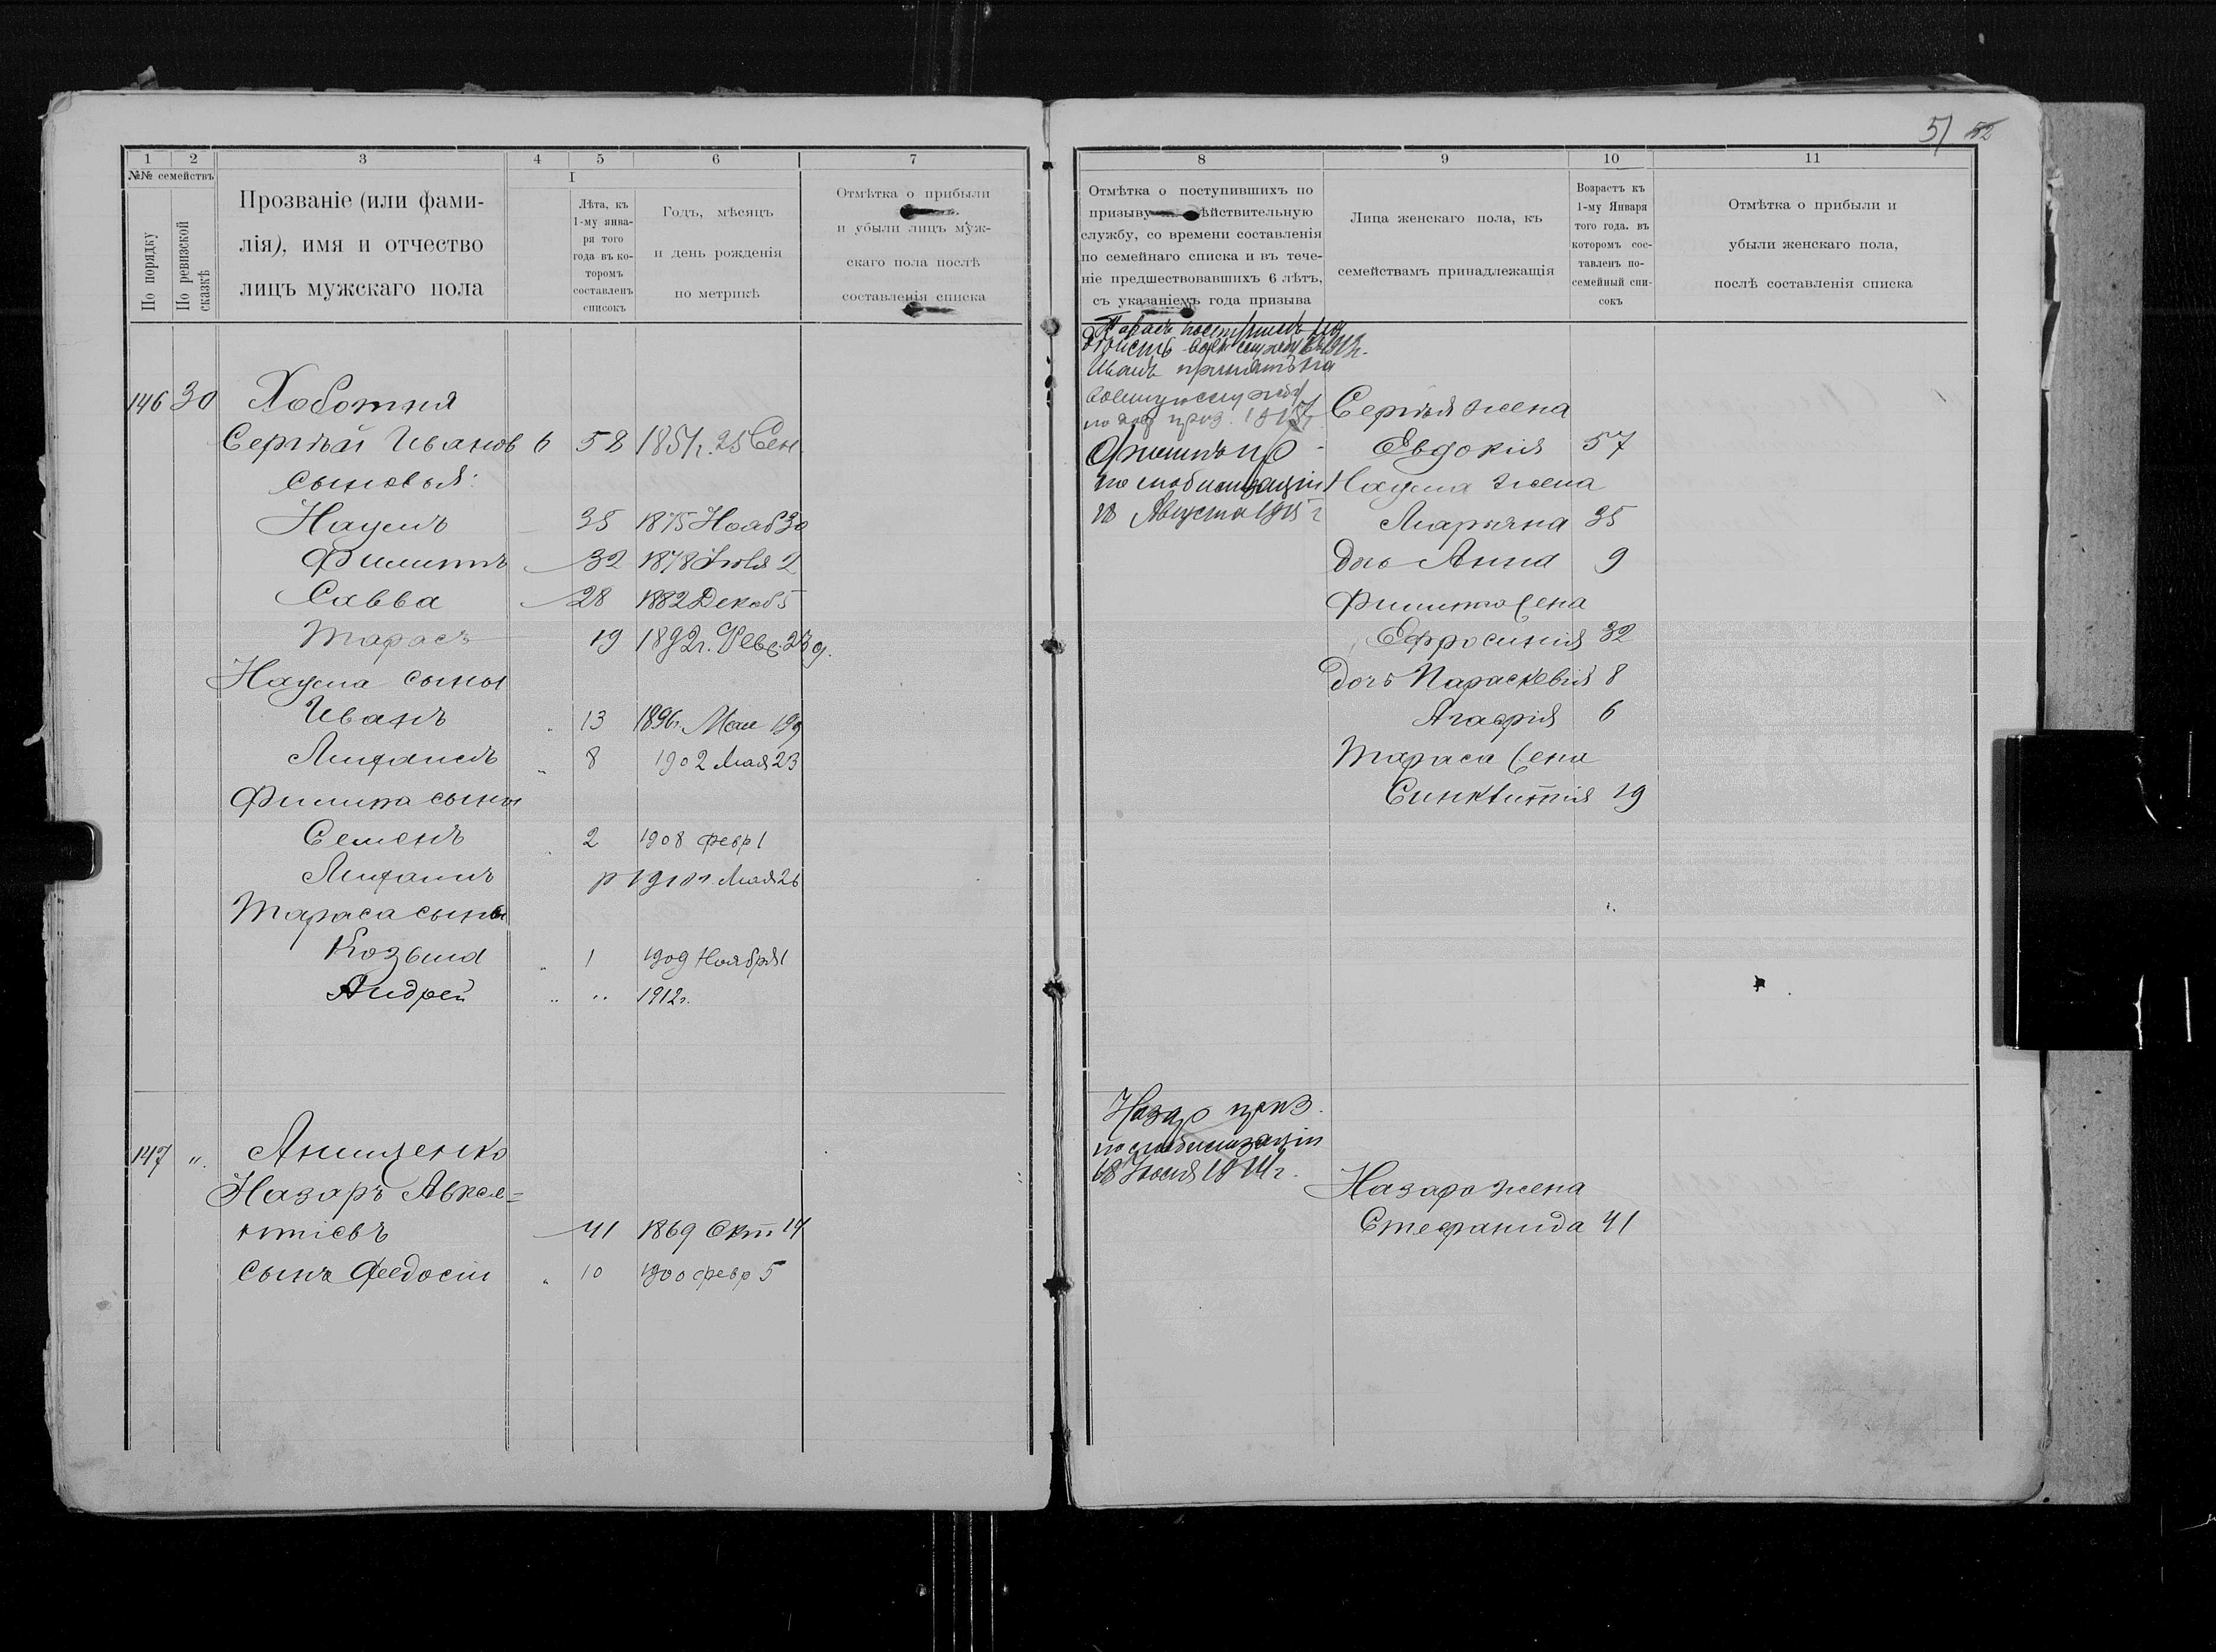 51 52
1 2 3 4 5 6 7
№№ семействъ
По порядку
По ревизской сказкѣ
Прозваніе (или фами-
лія), имя и отчество
лицъ мужскаго пола
I
Лѣта, къ
1-му янва-
ря того
года въ ко-
торомъ
составленъ
списокъ
Годъ, мѣсяцъ
и день рожденія
по метрикѣ
Отмѣтка о прибыли
и убыли лицъ муж-
скаго пола послѣ
составленія списка
146 30 Хоботня
Сергѣй Иванов 6 58 1851г. 25 Сен.
сыновья:
Наумъ 35 1875 Нояб 30
Филиппъ 32 1878 Июля 2
Савва 28 1882 Декаб 5
Тарасъ 19 1892г. Февр. 23 д.
Наума сыны
Иванъ 13 1896г. Мая 19
8 1902 Мая 23
Филипа сыны
Семенъ 2 1908 февр 1
р 1910г. Мая 26
Тараса сыны
Козьма 1 1909 Ноября 1
Андрей 1912г.
147 „ Анищенко
Назаръ Авксе=
нтіевъ 41 1869 Окт 14
сынъ Федосій 10 1900 февр 5
8 9 10 11
Отмѣтка о поступившихъ по
призыву ѣйствительную
службу, со времени составленія
по семейнаго списка и въ тече-
ніе предшествовавшихъ 6 лѣтъ,
съ указаніемъ года призыва
Лица женскаго пола, къ
семействамъ принадлежащія
Возрастъ къ
1-му Января
того года. въ
которомъ сос-
тавленъ по-
семейный спи-
сокъ
Отмѣтка о прибыли и
убыли женскаго пола,
послѣ составленія списка
Тарасъ поступилъ на
дѣйств воен службу 1913г.
Иванъ принятъ на
военную службу
по приз. 1915г
Филипъ пр
по мобилизаціи
18 Августа 1915 г
Сергѣя жена
Евдокія 57
Наума жена
Марьяна 35
дочь Анна 9
Филипа жена
Ефросинія 32
дочь Параскевія 8
Агафія 6
Тараса жена
Синклитія 19
Назар приз.
по мобилизаціи
18 Июля 1914г.
Назара жена
Стефанида 41